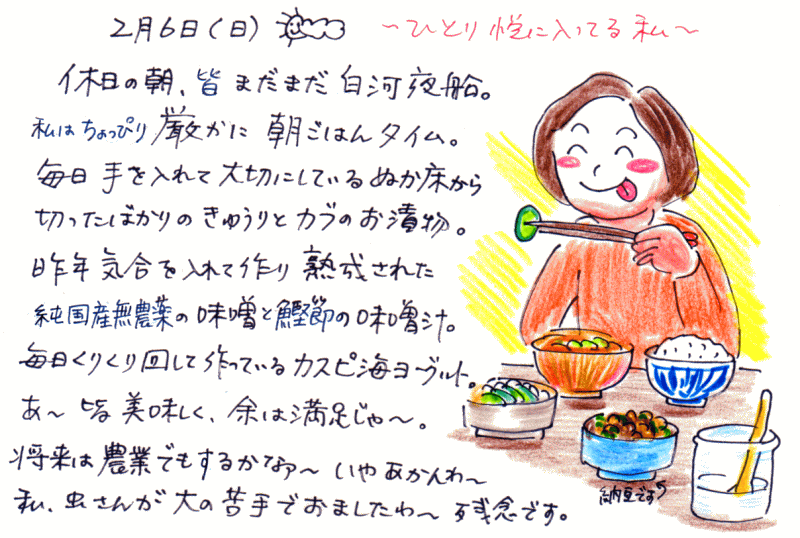 2月6日(日)
~ひとり悦に入ってる私~
休日の朝、皆まだまだ白河夜船。
私はちょっぴり厳かに朝ごはんタイム。
毎日手を入れて大切にしているぬか床から
切ったばかりのきゅうりとカブのお漬物。
昨年気合を入れて作り熟成された
純国産無農薬の味噌と鰹節の味噌汁。
毎日くりくり回して作っているカスピ海ヨーグルト。
あ~皆美味しく、余は満足じゃ~。
将来は農業でもするかなァ~いやあかんわ~
私、虫さんが大の苦手でおましたわ~残念です。
納豆です